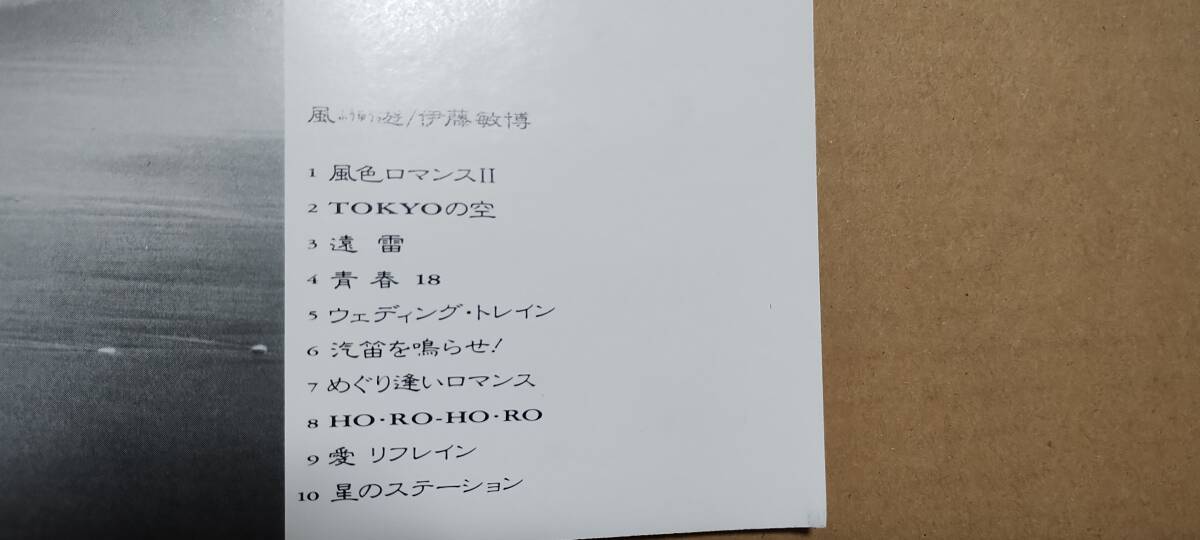 風 ふうゆう 遊/伊藤敏博
1 風色ロマンスII
2 TOKYOの空
3 遠雷
4 青春 18
5 ウェディング・トレイン
6 汽笛を鳴らせ!
7 めぐり逢いロマンス
8 HO・RO-HO・RO
9 愛 リフレイン
10 星のステーション